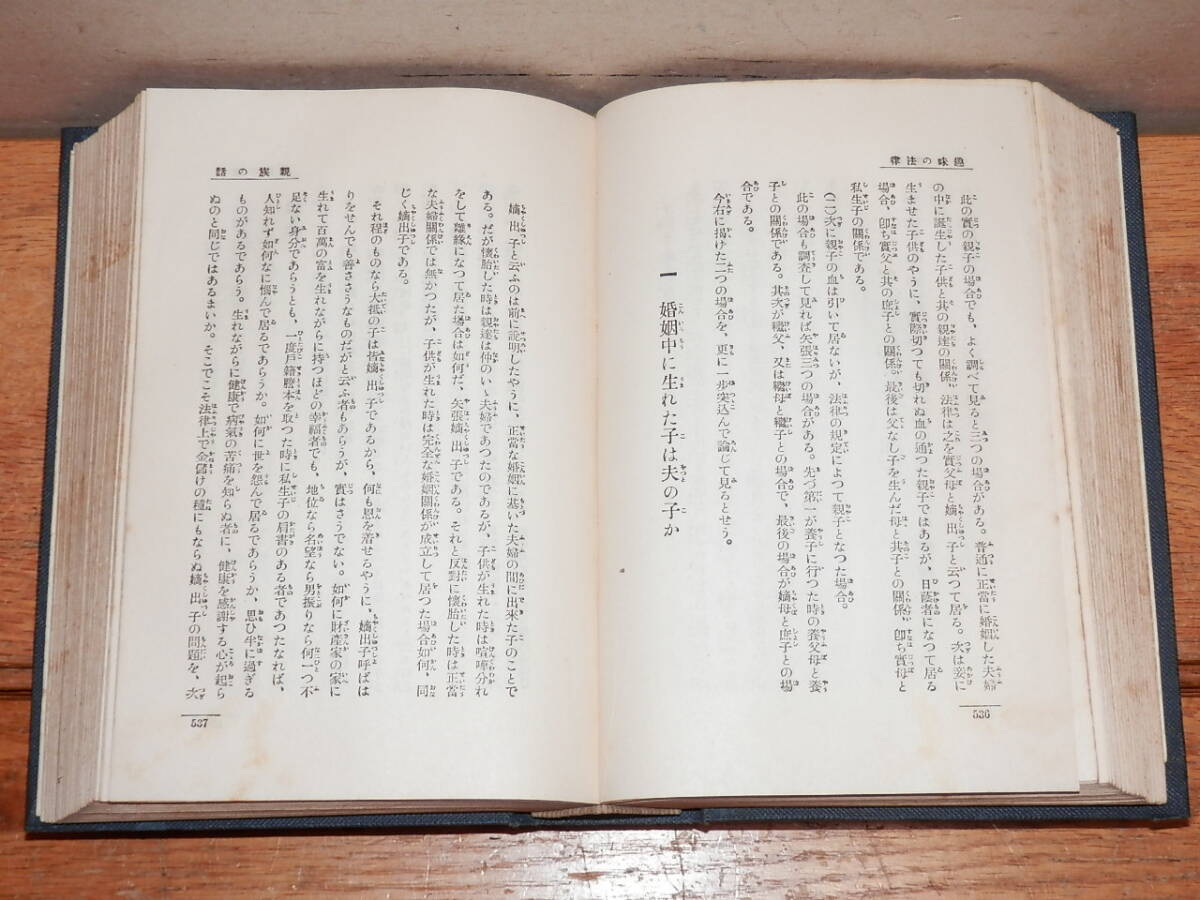 趣味の法律
此の實の親子の場合でも、よく調べて見ると三つの場合がある。普通に正當に婚姻した夫婦
の中に誕生した子供と其の親達の關係、法律は之を實父母と嫡出子と云つて居る。次は妾に
生ませた子供のやうに、實際切つても切れぬ血の通つた親子ではあるが、日蔭者になつて居る
場合、卽ち實父と其の庶子との關係。最後は父なし子を生んだ母と其子との關係、卽ち實母と
私生子の關係である。
(二)次に親子の血は引いて居ないが、法律の規定によつて親子となつた場合。
此の場合も調査して見れば矢張三つの場合がある。先づ第一が養子に行つた時の養父母と養
子との關係である。其次が繼父、又は繼母と繼子との場合で、最後の場合が嫡母と庶子との場
合である。
今右に掲けた二つの場合を、更に一步突込んで論じて見るとせう。
一 婚姻中に生れた子は夫の子か
536
親族の話
嫡出子と云ふのは前に說明したやうに、正當な婚姻に基いた夫婦の間に出來た子のことで
ある。だが懷胎した時は親達は仲のいゝ夫婦であつたのであるが、子供が生れた時は喧嘩分れ
をして離緣になつて居た場合は如何だ、矢張嫡出子である。それと反對に懷胎した時は正當
な夫婦關係では無かつたが、子供が生れた時は完全な婚姻關係が成立して居つた場合如何、同
じく嫡出子である。
それ程のものなら大抵の子は皆嫡出子であるから、何も恩を着せるやうに、嫡出子呼ばは
りをせんでも善ささうなものだがと云ふ者もあらうが、實はさうでない。如何に財產家の家に
生れて百萬の富を生れながらに持つほどの幸福者でも、地位なら名望なら男振りなら何一つ不
足ない身分であらうとも、一度戶籍謄本を取つた時に私生子の肩書のある者であつたなれば、
人知れず如何なに惱んで居るであらうか。如何に世を怨んで居るであらうか、思ひ半に過ぎる
ものがあるであらう。生れながらに健康で病氣の苦痛を知らぬ者に、健康を感謝する心が起ら
ぬのと同じではあるまいか。そこでこそ法律上で金儲けの種にもならぬ嫡出子の問題を、次
537